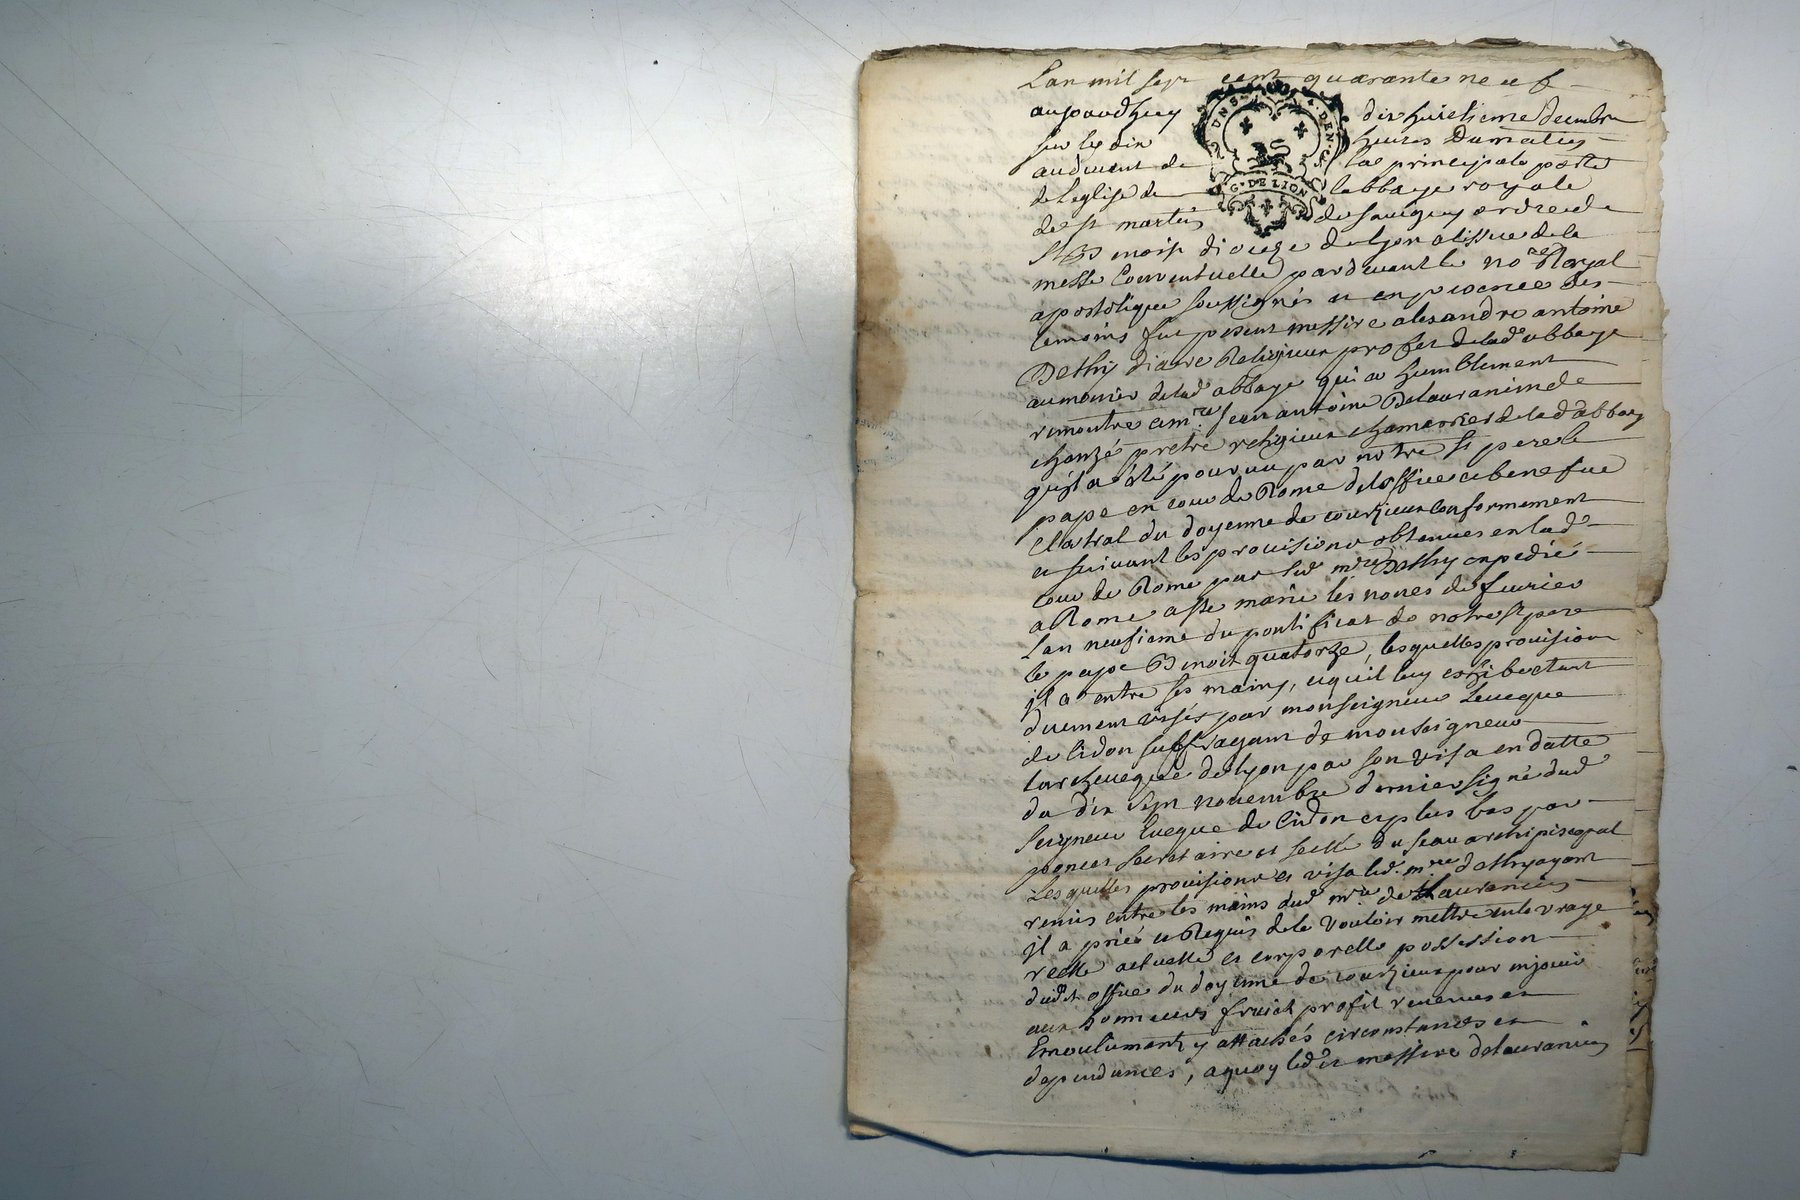 Lan mil sept cent quarante neuf
aujourdhuy dix huictieme decembre
sur les dix heures Du matin
audevant de la principale porte
de Leglise de labbaye royale
de st martin de savigny ordre de
St B noist dioceze de lyon a lissue de la
messe Conventuelle pardevant le nore Royal
apostolique soussignés et en presence des
temoins fut present messire alexandre antoine
Dethy diacre Religieux profes de lade abbaye
aumonier de lade abbaye qui a humblement
remontre a mre jean antoine Delauranin de
chanzé pretre religieux chamarier de lad abbaye
quil a été pourvu par notre st pere le
pape en cour de Rome de loffice et benefice
Claustral du doyenne de courzieux conformement
et suivant les provisions obtenues en lade
cour de Rome par led mre Dethy expediés
a Rome a ste marie les nones de fevrier
Lan neufieme du pontificat de notre st pere
le pape Benoit quatorze, lesquelles provisions
il a entre ses mains, et quil luy exhibe etant
duement visés par monseigneur Leveque
de Cidon suffragant de monseigneur
larcheveque de lyon par son visa en datte
du dix sept novembre dernier signé dud
seigneur Eveque de Cidon et plus bas par
poncet secretaire et scellé du sceau archipiscopal
Lesquelles provisions et visa led. mre dethy ayant
remis entre les mains dud mre de Lauranein
il a prié et Requis de le vouloir mettre en la vraye
reelle actuelle et corporelle possession
dudit office du doyenné de courzieux pour en jouir
aux honneurs fruict profit revenus et
Emoulument y attachés circonstances et
dependances, a quoy ledit messire delauranein
G. DE LION